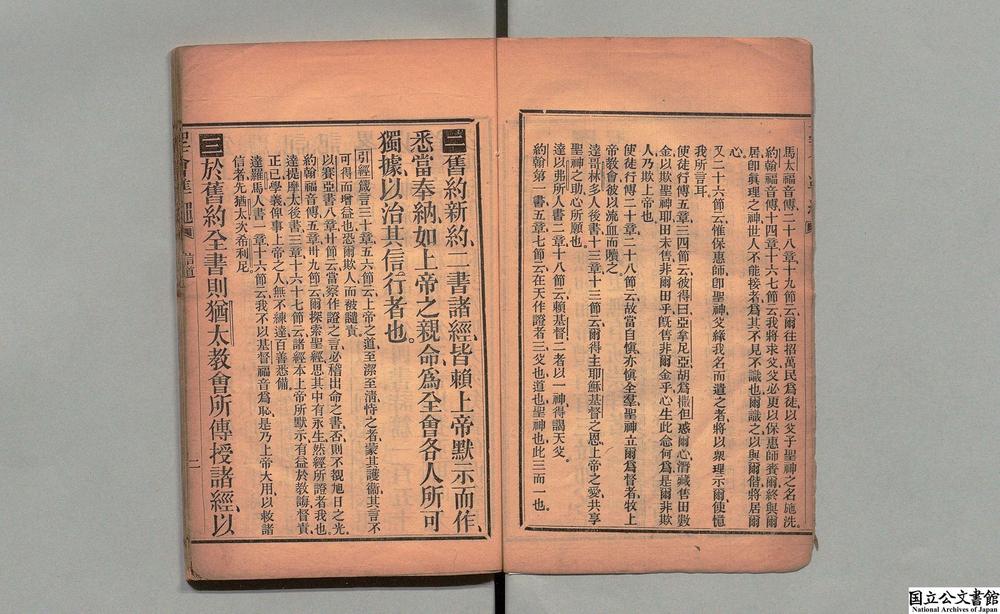 馬太福音傳二十八章十九節云爾往招萬民爲徒以父子聖神之名施洗、
約翰福音傳十四章十六七節云我將求父父必更以保惠師賚爾終與爾
居卽眞理之神世人不能接者爲其不見不識也爾識之以與爾偕將居爾
心、
又二十六節云惟保惠師卽聖神父緣我名而遣之者將以衆理示爾使憶
我所言耳、
使徒行傳五章三四節云彼得曰亞拿尼亞胡爲撒但惑爾心潛藏售田數
金以欺聖神耶田未售非爾田乎旣售非爾金乎心生此念何爲是爾非欺
人乃欺上帝也
使徒行傳二十章二十八節云故當自愼亦愼全羣聖神立爾爲督者牧上
帝教會彼以流血而贖之
達哥林多人後書十三章十三節云爾得主耶穌基督之恩上帝之愛共享
聖神之助心所願也
達以弗所人書二章十八節云賴基督二者以一神得謁天父、
約翰第一書五章七節云在天作證者三父也道也聖神也此三而一也、
二舊約新約二書諸經皆賴上帝默示而作、
悉當奉納如上帝之親命爲全會各人所可
獨據以治其信行者也。
引經箴言三十章五六節云上帝之道至潔至淸恃之者蒙其護衞其言不
可得而增益也恐爾欺人而被譴責
以賽亞書八章廿節云當察作證之言必稽出命之書否則不覩旭日之光
約翰福音傳五章卅九節云爾探索聖經思其中有永生然經所證者我也
達提摩太後書三章十六十七節云諸經本上帝所默示有益於教誨督責
正己學義俾事上帝之人無不練達百善悉備
達羅馬人書一章十六節云我不以基督福音爲恥是乃上帝大用以救諸
信者先猶太次希利尼
三於舊約全書則猶太教會所傳授諸經以
信道
二
国立公文書館
National Archives of Japan